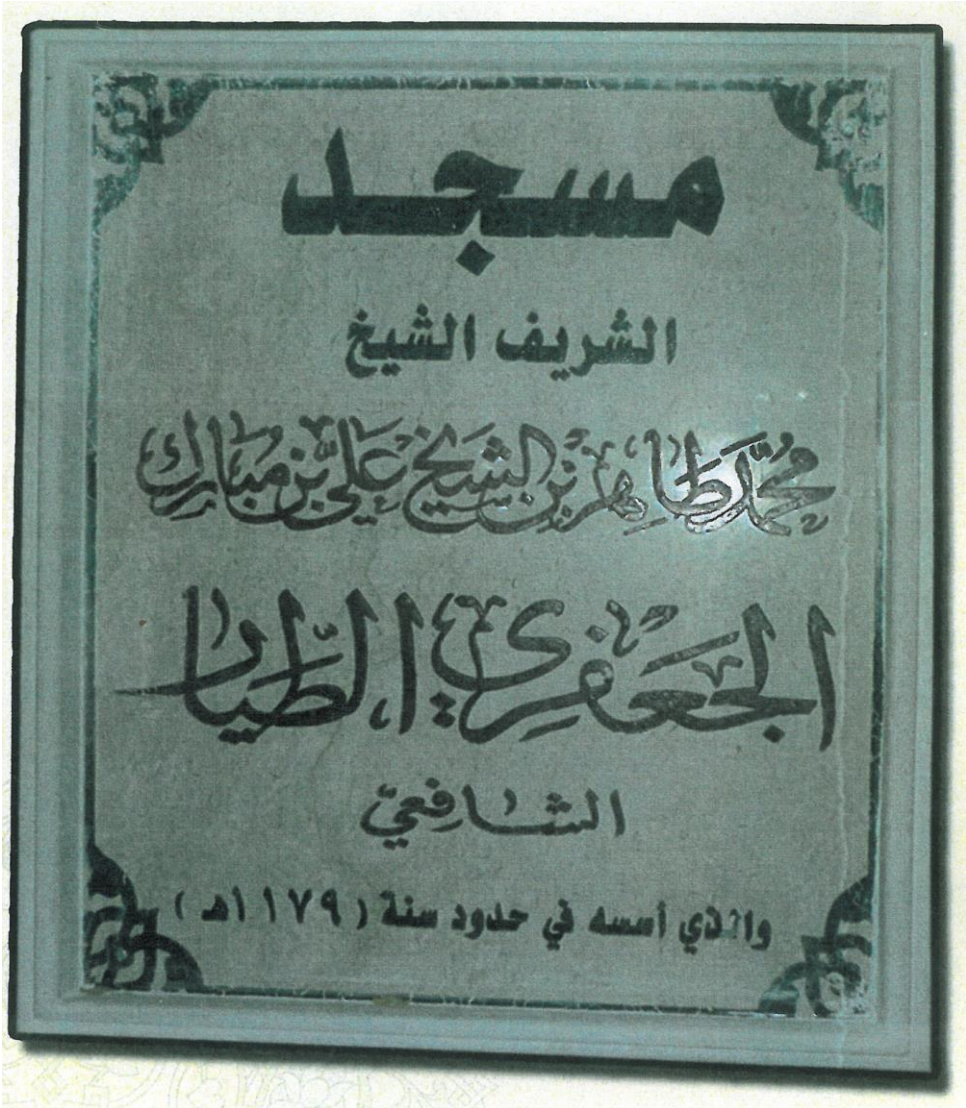 مسجد
الشريف الشيخ
محمد طاهر بن الشيخ علي بن مبارك
الجعفري الطيار
الشافعي
والذي أسسه في حدود سنة ( ١١٧٩هـ )